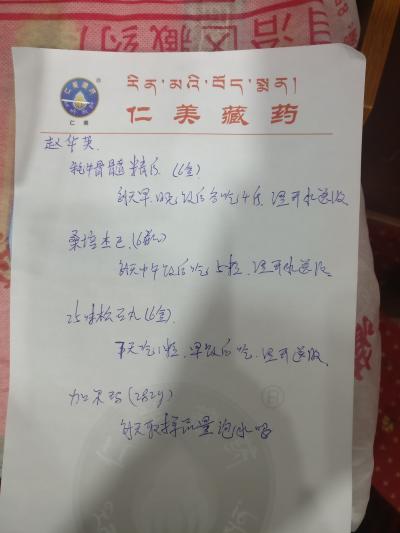 自治区藏药
仁美藏药
རིན་མའི་བོད་སྨན།
仁美
仁美藏药
赵华英
牦牛骨髓精片(6盒)
每天早.晚饭后各吃4片,温开水送服
桑培杰已(6瓶)
每天中午饭后吃5粒,温开水送服。
25味松石丸(6盒).
每天吃1粒,早饭后吃,温开送服,
(282g)
每天取 量泡水喝